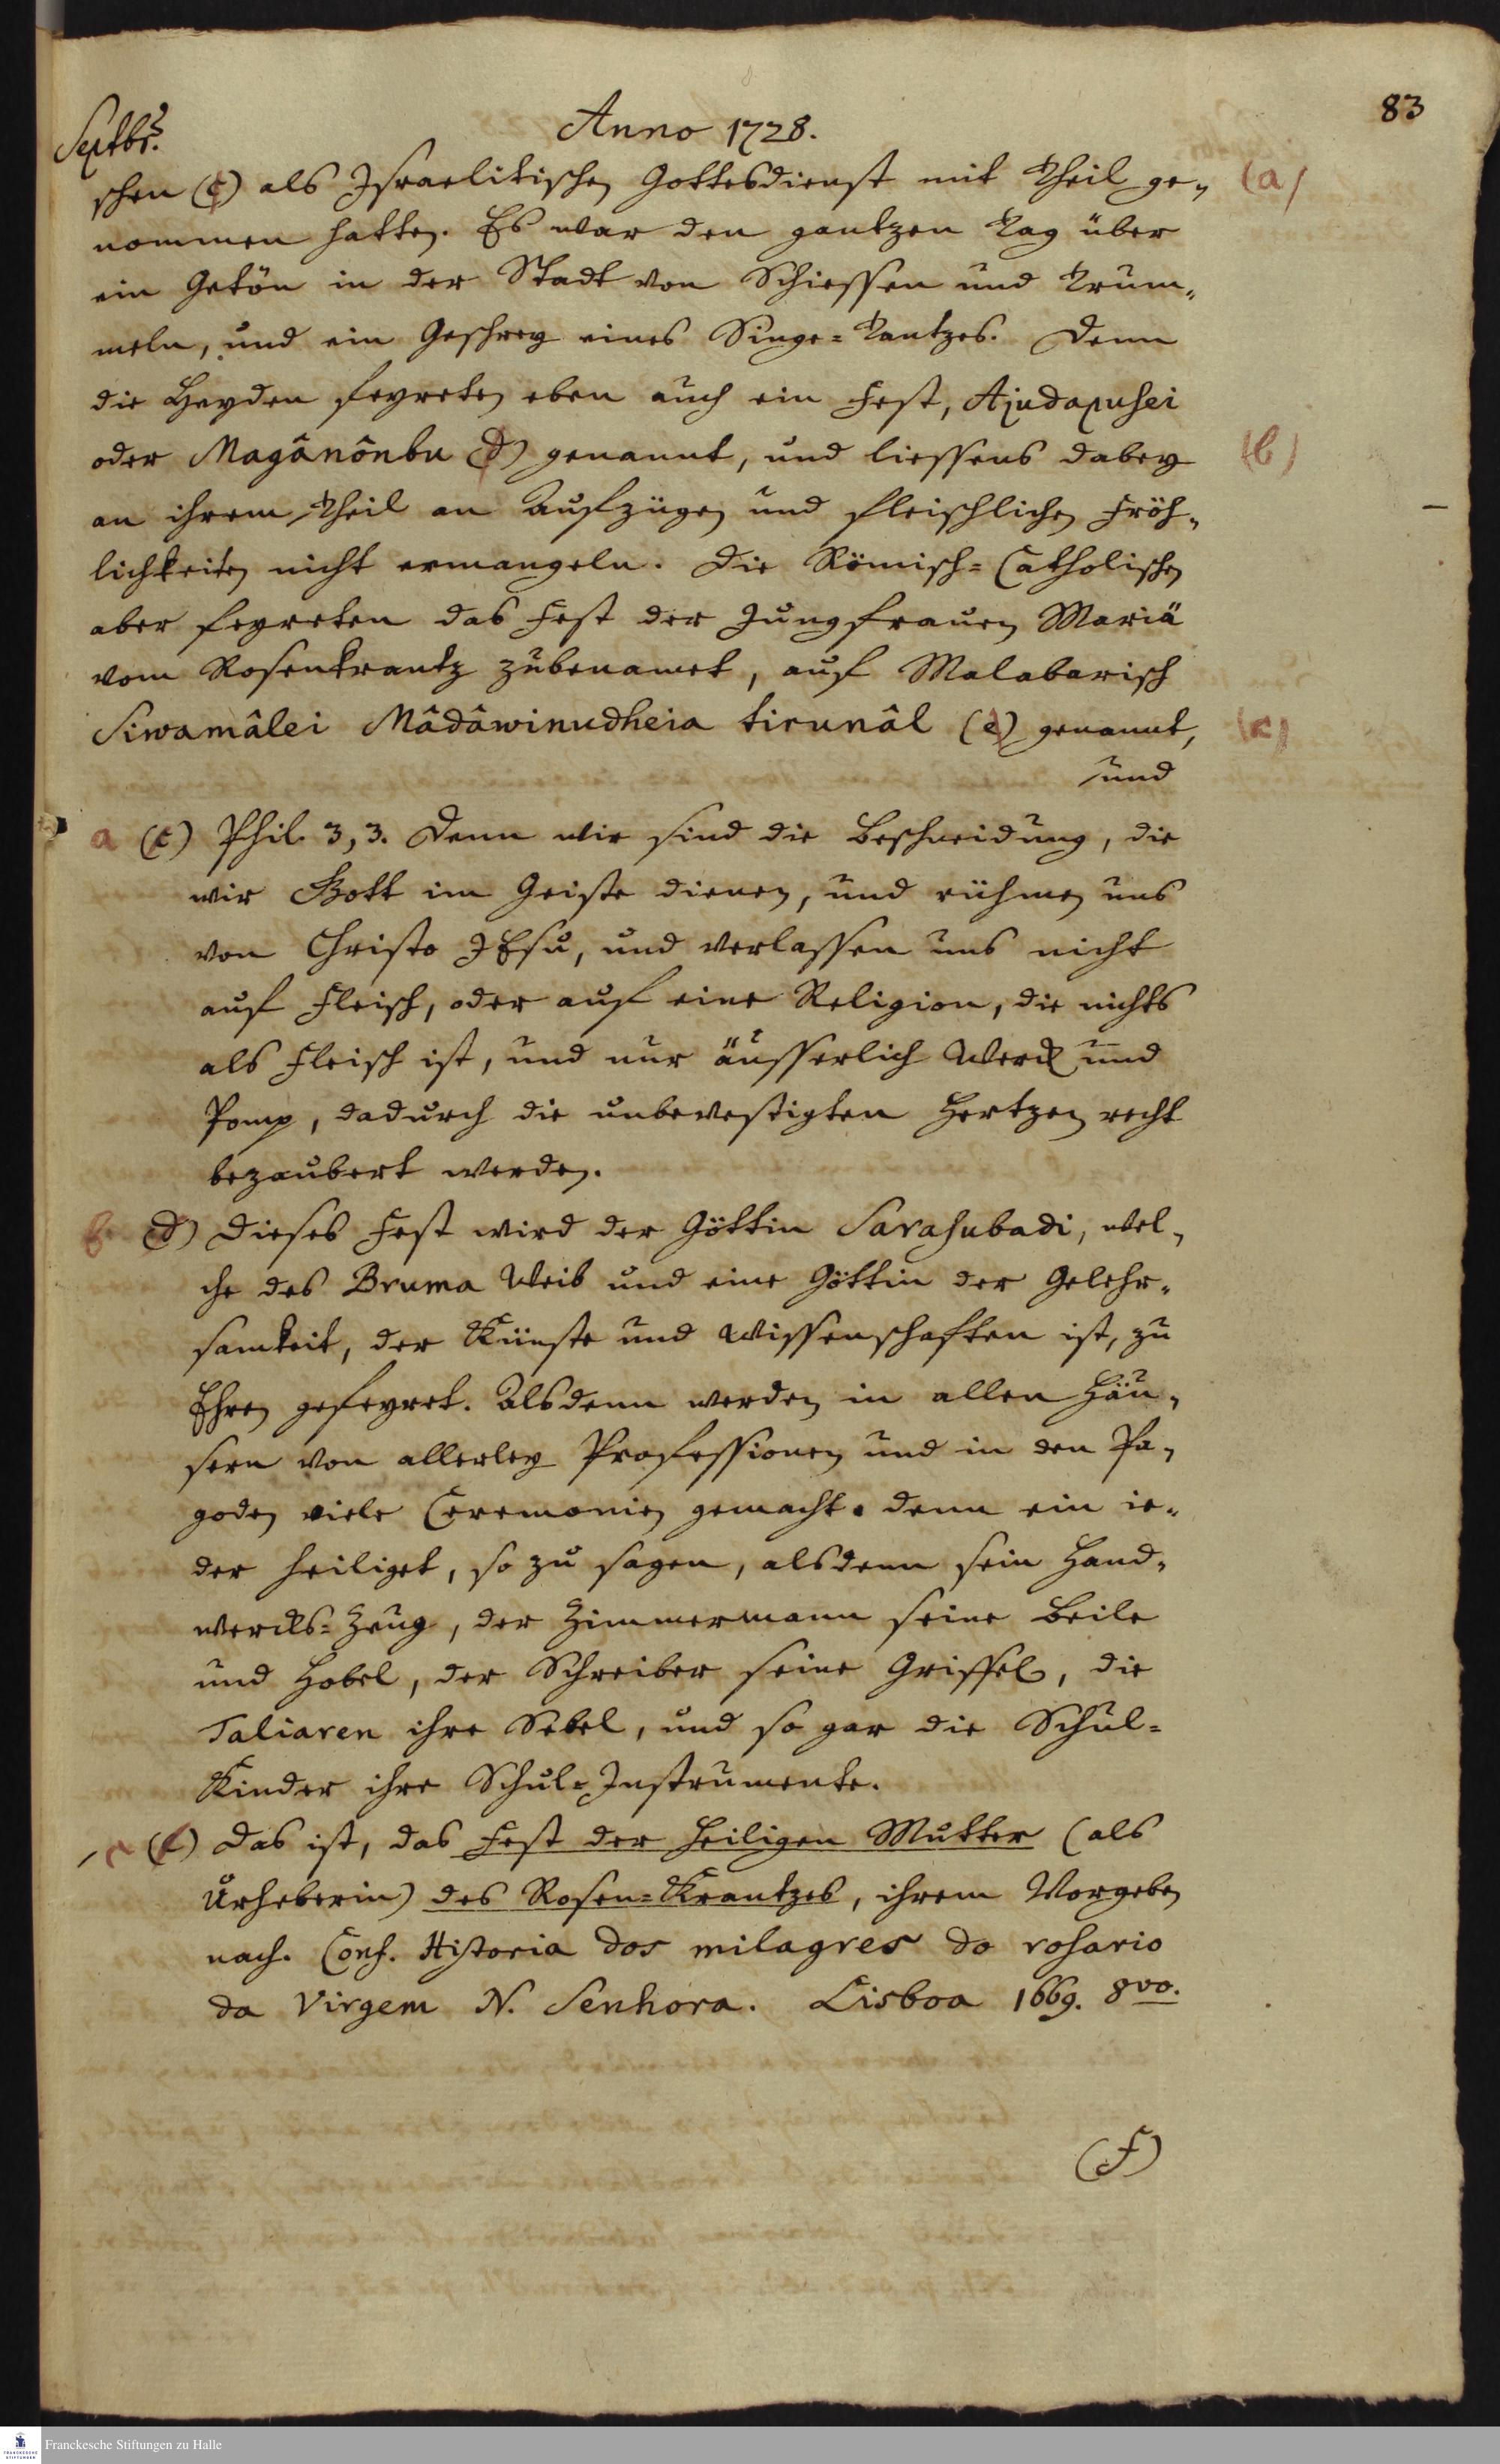 83
Septbr.
Anno 1728.
schen (c) als Israelitischen Gottesdienst mit Theil ge-
(a)
nommen hatten. Es war den gantzen Tag über
ein Getön in der Stadt von Schiessen und Trum-
meln, und ein Geschrey eines Singe-Tantzes. Denn
die Heyden feyreten eben auch ein Fest, Ajudapusei
oder Magânônbu (d) genannt, und liessens dabey
(b)
an ihrem Theil an Aufzügen und fleischlichen Fröh-
lichkeiten nicht ermangeln. Die Römisch-Catholischen
aber feyreten das Fest der Jungfrauen Mariä
vom Rosenkrantz zubenamet, auf Malabarisch
Siwamâlei Mâdâwinudheia tirunâl (e) genannt,
(c)
und
a (c) Phil. 3, 3. Denn wir sind die Beschneidung, die
wir Gott im Geiste dienen, und rühmen uns
von Christo JEsu, und verlassen uns nicht
auf Fleisch, oder auf eine Religion, die nichts
als Fleisch ist, und nur äusserlich Werck und
Pomp, dadurch die unbevestigten Hertzen recht
bezaubert werden.
b (d) Dieses Fest wird der Göttin Sarasubadi, wel-
che des Bruma Weib und eine Göttin der Gelehr-
samkeit, der Künste und Wissenschaften ist, zu
Ehren gefeyret. Alsdenn werden in allen Häu-
sern von allerley Professionen und in den Pa-
goden viele Ceremonien gemacht. denn ein ie-
der heiliget, so zu sagen, alsdenn sein Hand-
wercks-Zeug, der Zimmermann seine Beile
und Hobel, der Schreiber seine Griffel, die
Taliaren ihre Sebel, und so gar die Schul-
Kinder ihre Schul-Instrumente.
c (e) Das ist, das Fest der heiligen Mutter (als
Urheberin) des Rosen-Krantzes, ihrem Vorgeben
nach. Conf. Historia dos milagres do rosario
da Virgem N. Senhora. Lisboa 1669. 8vo.
(f)
Franckesche Stiftungen zu Halle
FRANCKESCHE
STIFTUNGEN